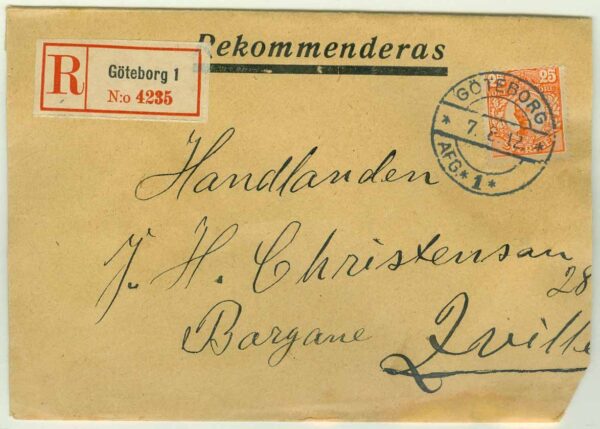 Rekommenderas
R
Göteborg 1
N:o 4235
25
GÖTEBORG
* 7. 2. 12. *
AFG. * 1 *
Handlanden
J. H. Christensan
28
Bargane Zville